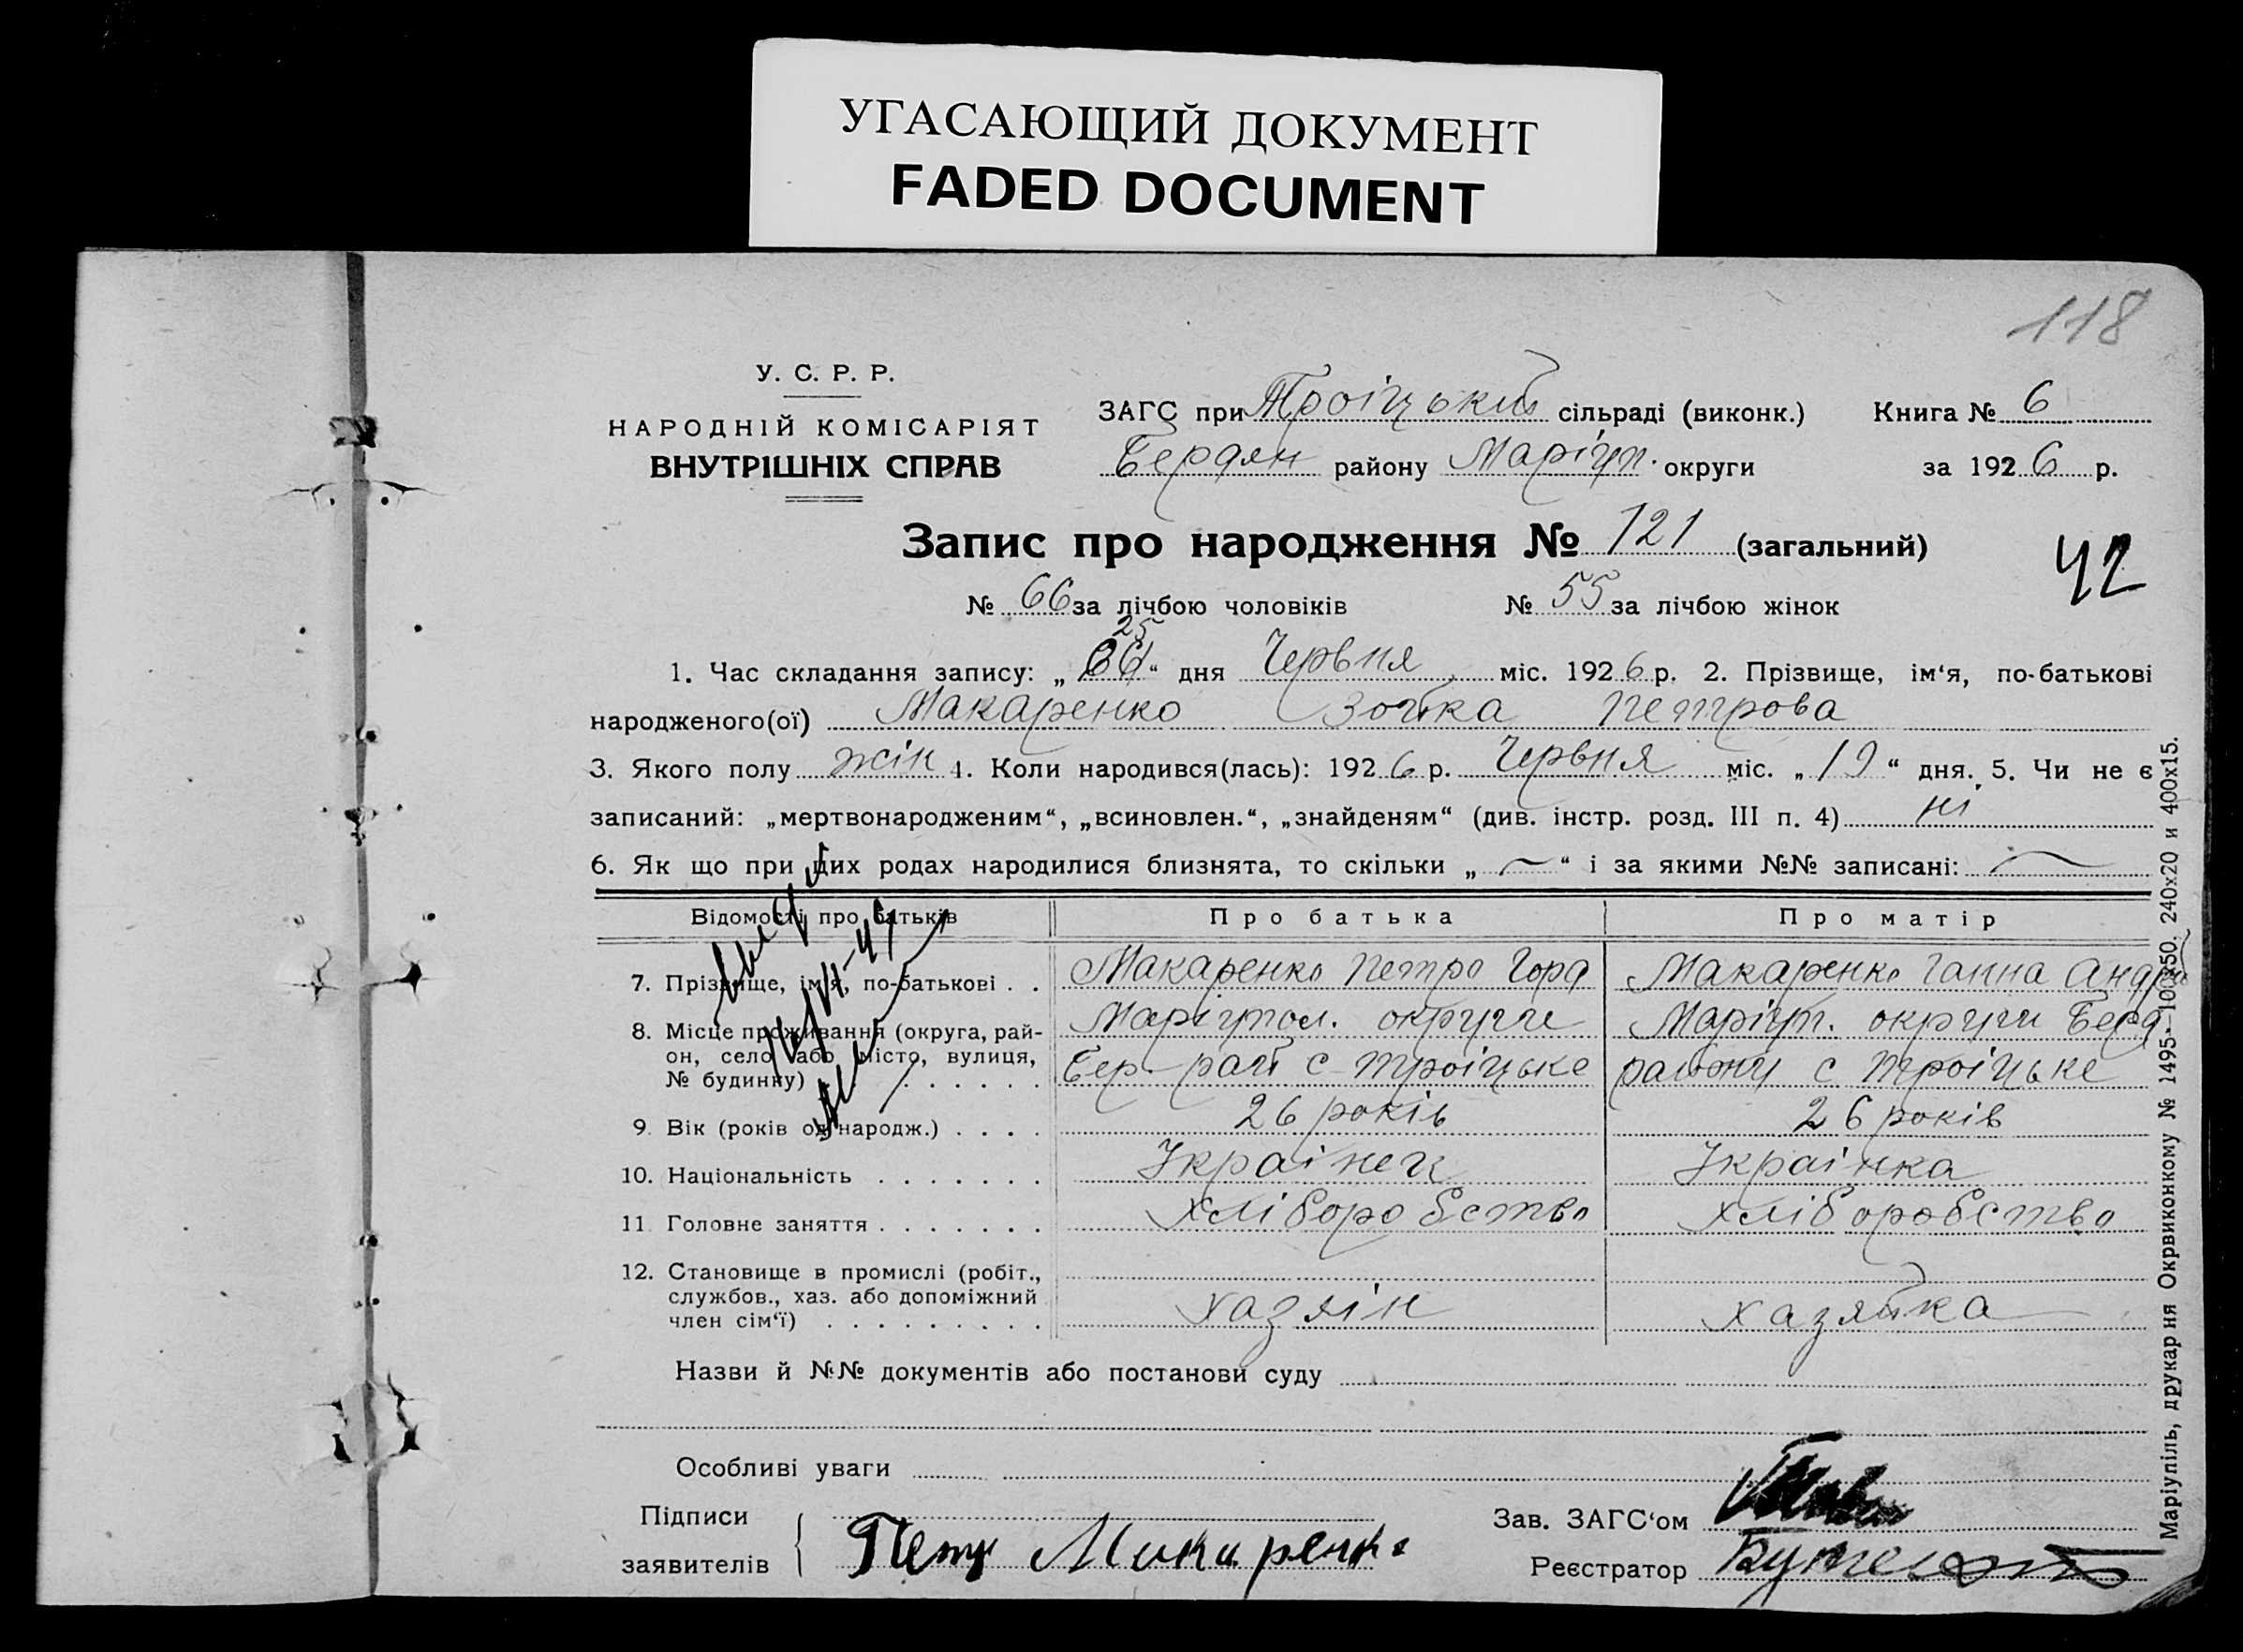 УГАСАЮЩИЙ ДОКУМЕНТ
FADED DOCUMENT
118
У. С. Р. Р.
НАРОДНІЙ КОМІСАРІЯТ
ВНУТРІШНІХ СПРАВ
ЗАГС при Троіцький сільраді (виконк.) Книга № 6
Бердян району Маріуп. округи за 1926 р.
Запис про народження № 121 (загальний)
42
№ 66 за лічбою чоловіків № 55 за лічбою жінок
25
1. Час складання запису: „ “ дня Червня міс. 1926 р. 2. Прізвище, ім‘я, по-батькові
народженого(ої) Макаренко Зойка Петрова
3. Якого полу жін 4. Коли народився(лась): 1926 р. Червня міс. „19“ дня. 5. Чи не є
записаний: „мертвонародженим“, „всиновлен.“, „знайденям“ (див. інстр. розд. III п. 4) ні
6. Як що при цих родах народилися близнята, то скільки „ — “ і за якими №№ записані: —
Відомості про батьків Про батька Про матір
7. Прізвище, ім‘я, по-батькові . . Макаренко Петро Горд Макаренко Ганна Андр
8. Місце проживання (округа, рай- Маріупол. округи Маріуп. округи Берд
он, село або місто, вулиця, Бер рай с Троіцьке району с Троіцьке
№ будинку) . . . . . . .
9. Вік (років од народж.) . . . . 26 років 26 років
10. Національність . . . . . . . Украінец Украінка
11. Головне заняття . . . . . . . Хліборобство Хліборобство
12. Становище в промислі (робіт.,
службов., хаз. або допоміжний
член сім‘ї) . . . . . . . . . Хазяін Хазяйка
Назви й №№ документів або постанови суду
Особливі уваги
Підписи
заявителів Петр Макаренко
Зав. ЗАГС‘ом
Реєстратор
Маріупіль, друкарня Окрвиконкому № 1495-100х50. 240х20 и 400х15.